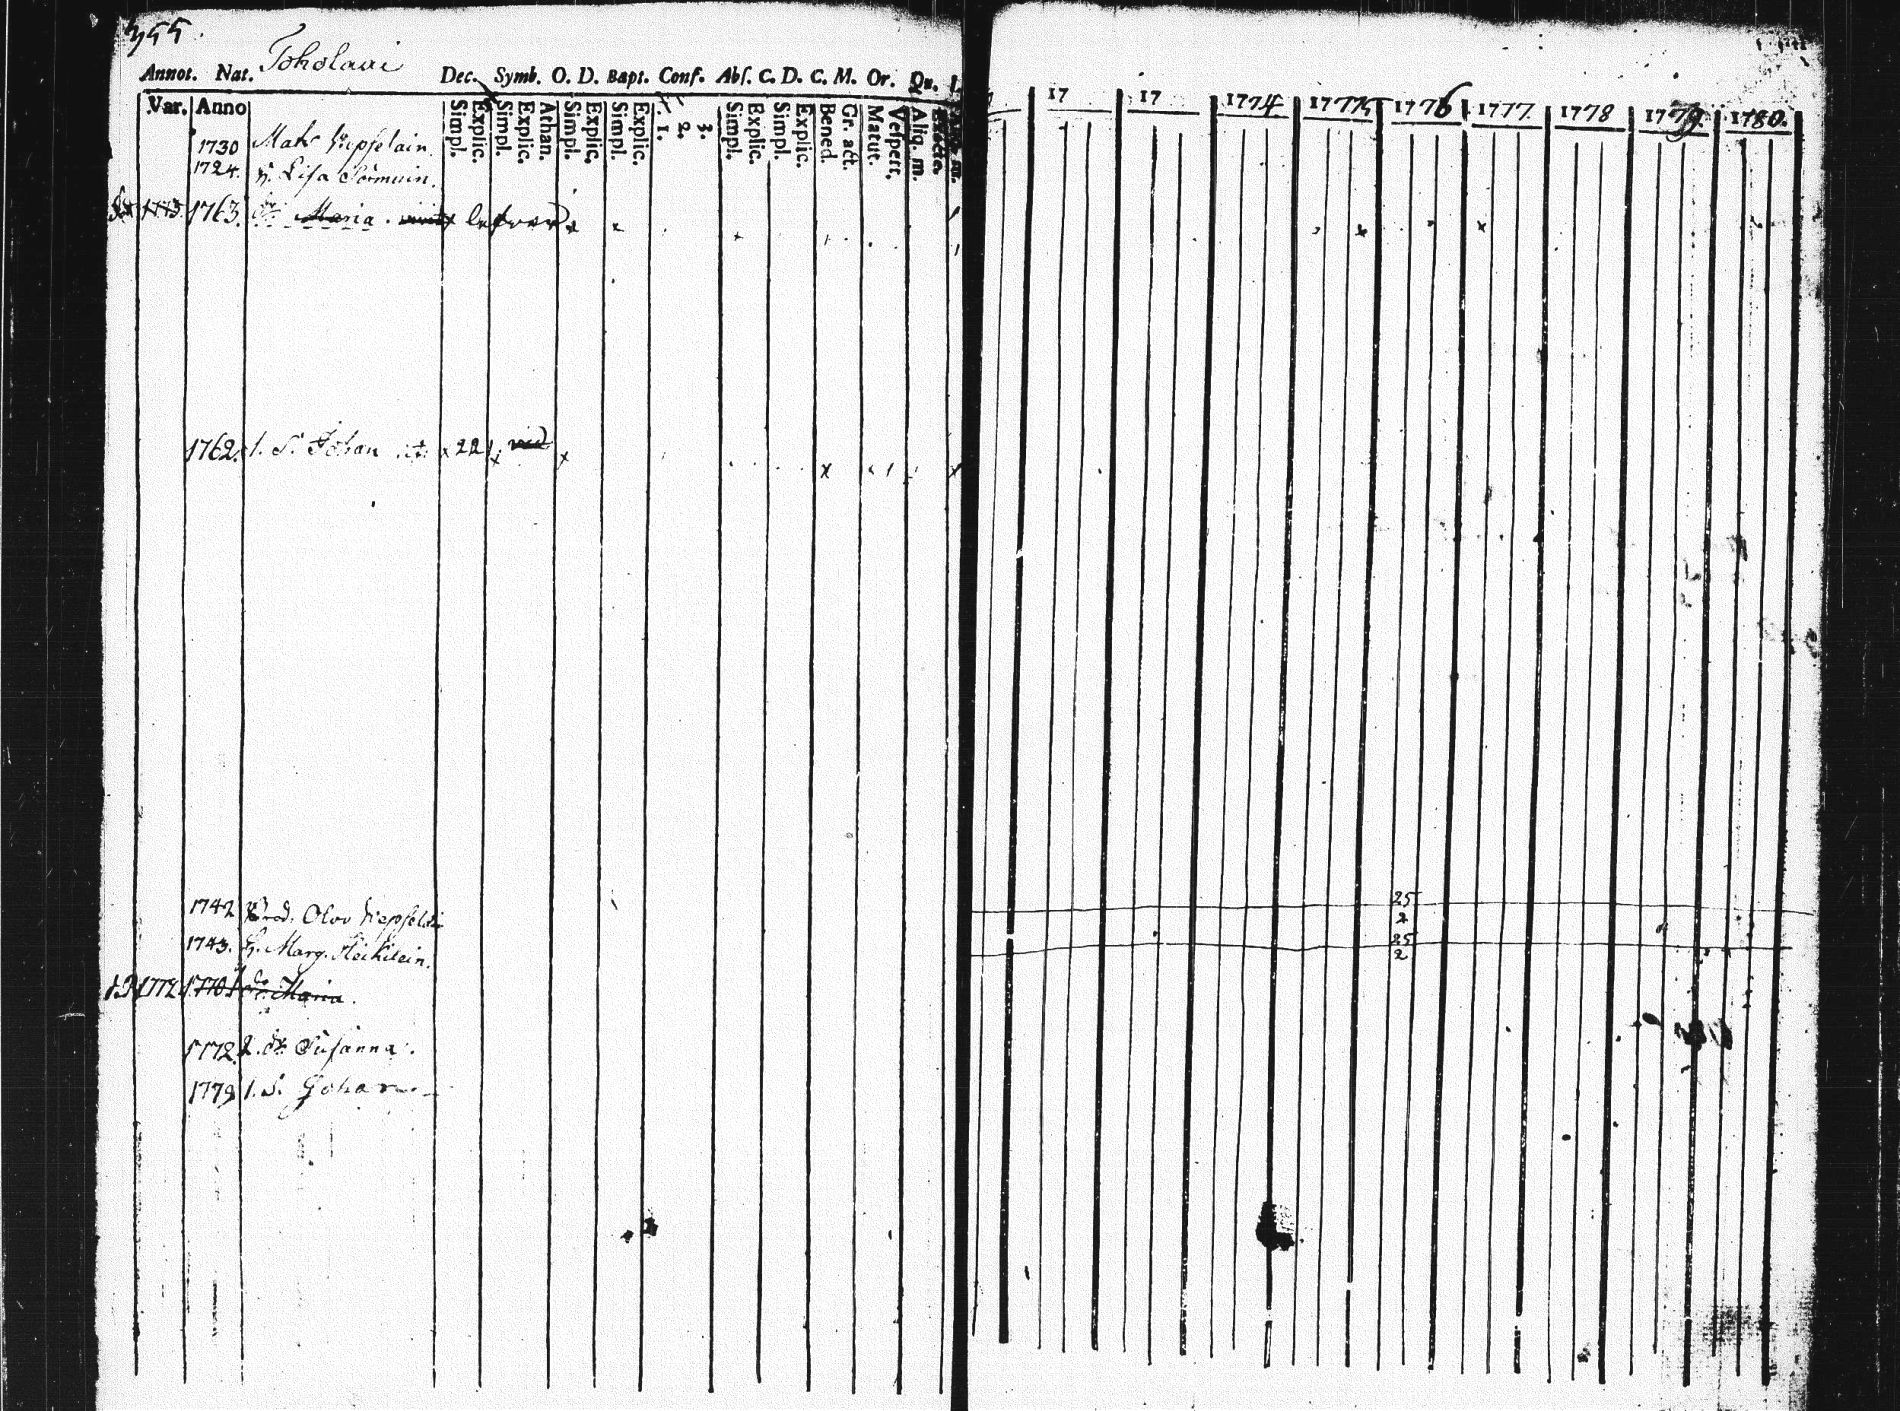 355.
Toholaxi
Annot. Nat. Dec. Symb. O. D. Bapt. Conf. Abſ. C. D. C. M. Or. Qu.
Var. Anno Simpl. Explic. Simpl. Explic. Athan. Simpl. Explic. Simpl. Explic. 1. 2. 3. Simpl. Explic. Simpl. Explic. Bened. Gr. act. Matut. Veſpert. Aliq. m. Exacte.
17 17 1774 1775 1776 1777 1778 1779 1780.
1730 Mats
1724. H. Lisa
1773. 1763. Dr. Maria.
1762. 1. S. Johan 22 vid
1742 Brod. Olov
1743. H. Marg. Heikilein.
1772. 1770. 1 Dr. Maria.
1772. 2. Dr. Susanna.
1779 1. S. Johan
25
2
25
2